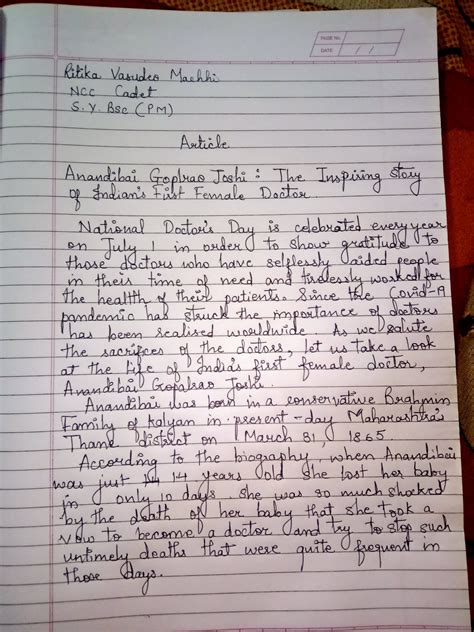 PAGE No.
DATE / /
Ritika Vasudeo Machhi
NCC Cadet
S.Y. Bsc (PM)
Article
Anandibai Goplrao Joshi : The Inspiring Story
of Indian's First Female Doctor.
National Doctor's Day is celebrated every year
on July 1 in order to show gratitude to
those doctors who have selflessly aided people
in their time of need and tirelessly worked for
the health of their patients. Since the Covid-19
pandemic has struck the importance of doctors
has been realised worldwide. As we salute
the sacrifices of the doctors, let us take a look
at the life of India's first female doctor,
Anandibai Gopalrao Joshi.
Anandibai was born in a conservative Brahmin
Family of Kalyan in present-day Maharashtra's
Thane district on March 31, 1865.
According to the biography, when Anandibai
was just 14 years old she lost her baby
in only 10 days. She was so much shocked
by the death of her baby that she took a
vow to become a doctor and try to stop such
untimely deaths that were quite frequent in
those days.